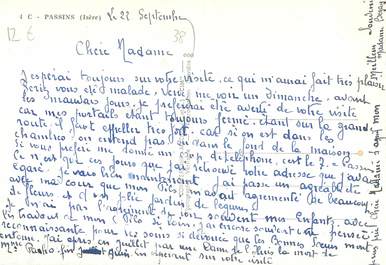 4 C - PASSINS (Isère) Le 22 Septembre
12 €
38
Chère Madame
J'espérai toujours sur votre visite, ce qui m'aurai fait très plaisir
vous été malade. Venez me voir un Dimanche, avant
les mauvais jours. Je préférerai être averti de votre visite
car mes portails étant toujours fermé, étant sur la grand
route, il faut appeller très fort, car si on est dans les
chambres on entend pas ou dans le fond de la maison.
Si vous préférez me donné un coup de téléphone, c'est le 7 à Passins
Ce n'est que ces jours que j'ai retrouvé votre adresse que j'avai
égaré. Je vais bien maintenant, j'ai passé un agréable été
avec ma cour que mon fils m'a agrémenté de beaucoup
de fleurs et d'un joli jardin de légumes.
Je n'ai pas fréquemment de voir souvent mes Enfants, avec
les travaux de mon fils si loin. J'ai encore souvent une pensée
reconnaissante pour vos soins si dévoués que les Bonnes Sœurs m'ont
entouré. J'ai appris en Juillet par une Dame de la mort de
Mme en espérant sur votre visite